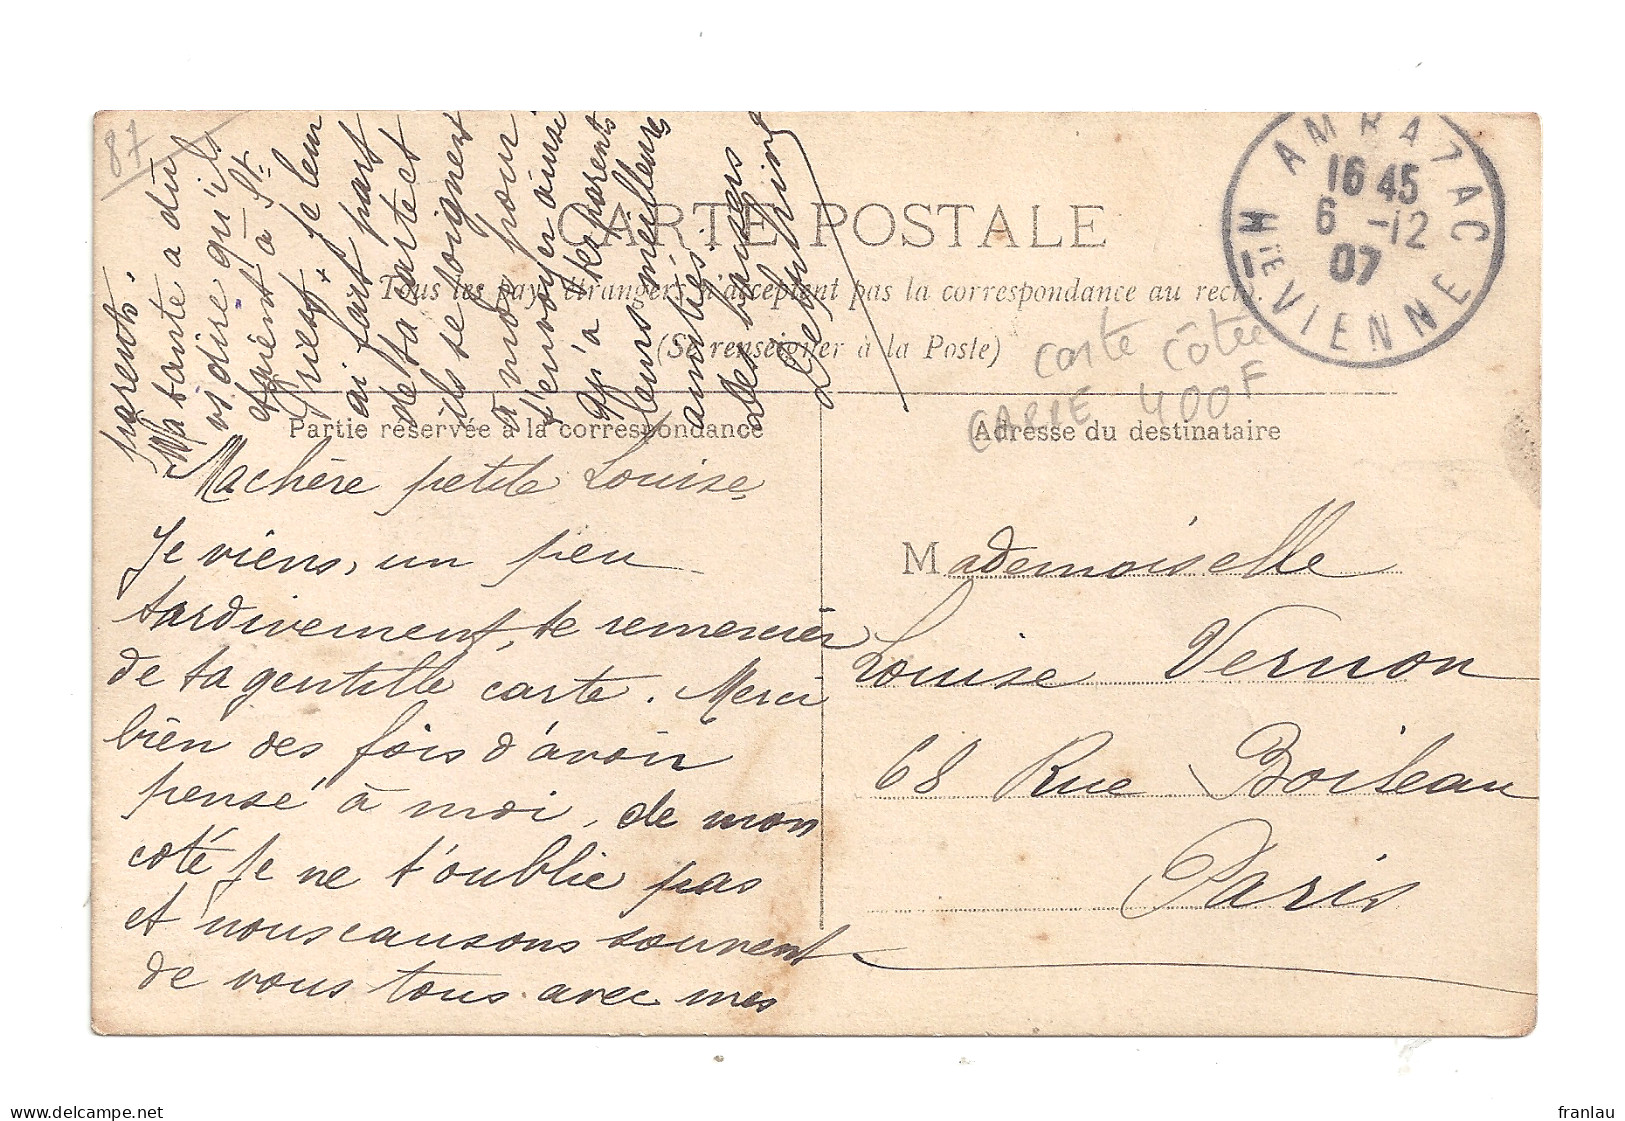 87
AMBAZAC
16 45
6 -12
07
Hte VIENNE
CARTE POSTALE
Tous les pays étrangers n'acceptent pas la correspondance au recto.
(Se renseigner à la Poste)
carte côtée
CARRE 400F
Partie réservée à la correspondance
Adresse du destinataire
Ma chère petite Louise,
Je viens, un peu
tardivement, te remercier
de ta gentille carte. Merci
bien des fois d'avoir
pensé à moi, de mon
coté je ne t'oublie pas
et nous causons souvent
de vous tous avec mes
parents.
Ma tante a dû
vs dire qu'ils
étaient à St.
Priest. Je leur
ai fait part
de ta carte et
ils se joignent
à moi pour
t'envoyer ainsi
qu'à tes parents
leurs meilleures
amitiés.
Des baisers
Mademoiselle
Louise Vernon
68 Rue Boileau
Paris
delcampe.net
franlau